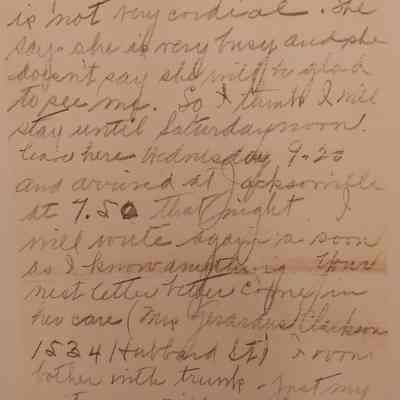 is not very cordial. She
says she is very busy and she
doesn't say she will be glad
to see me. So I think I will
stay until Saturday noon.
leave here Wednesday 9.20
and arrived at Jacksonville
at 7.50 that night I
will write again as soon
as I know anything Your
next letter better come in
her care (Mrs Clarkson
1534 Hubbard St) I won
bother with trunk - Just my